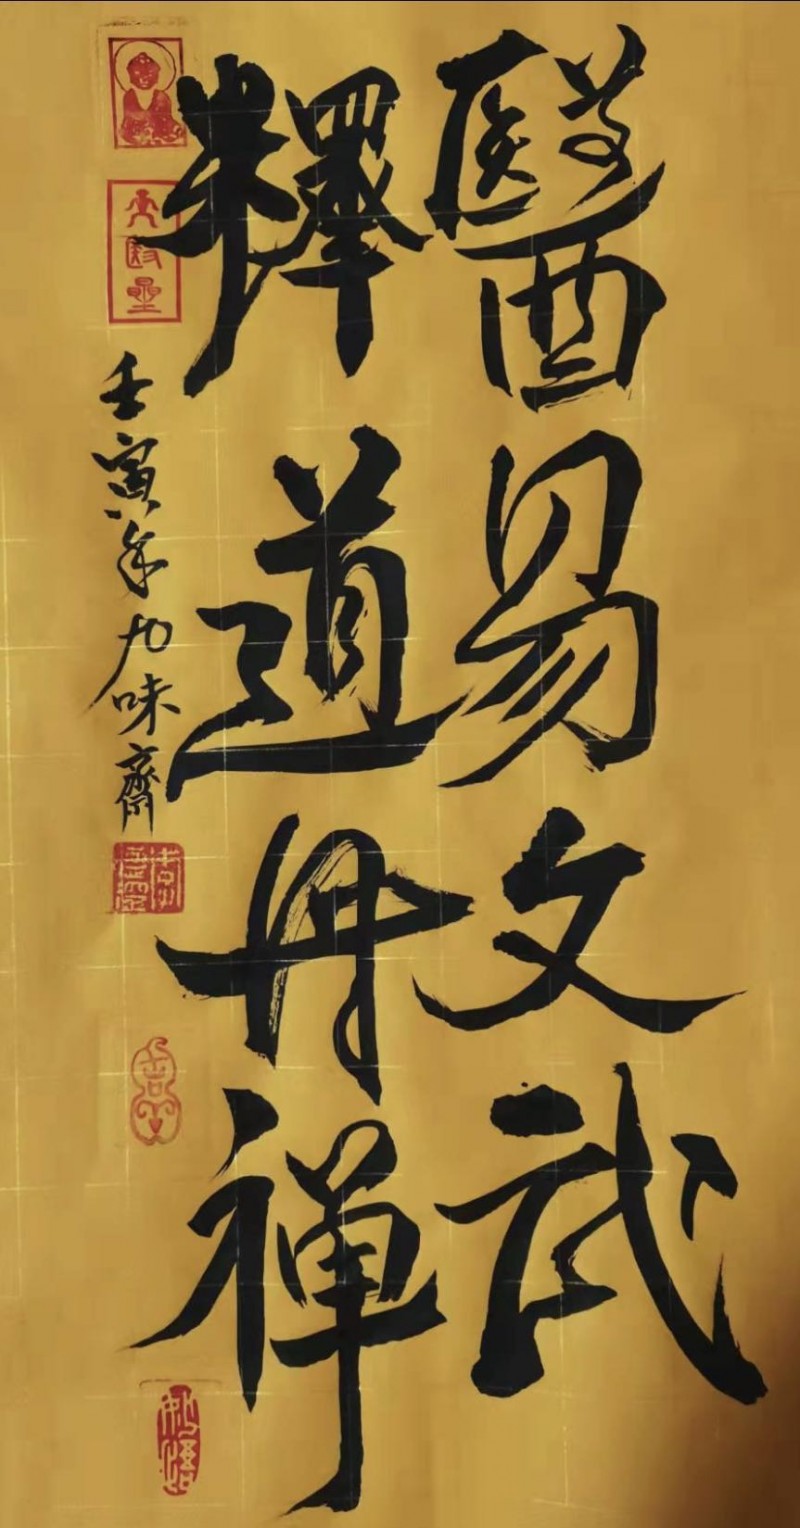 醫易文武
釋道丹禪
壬寅年九味齋
大医聖